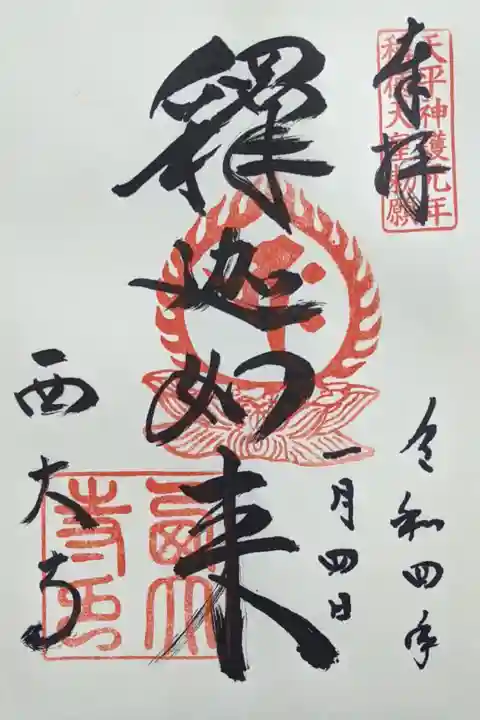 奉拝
天平神護元年
称徳天皇勅願
令和四年
一月四日
釋迦如来
西大寺
西大寺印